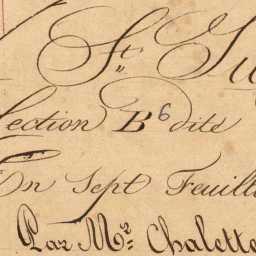 St Ju
Section B 6 dite
En Sept Feuille
Par Mr Chalette